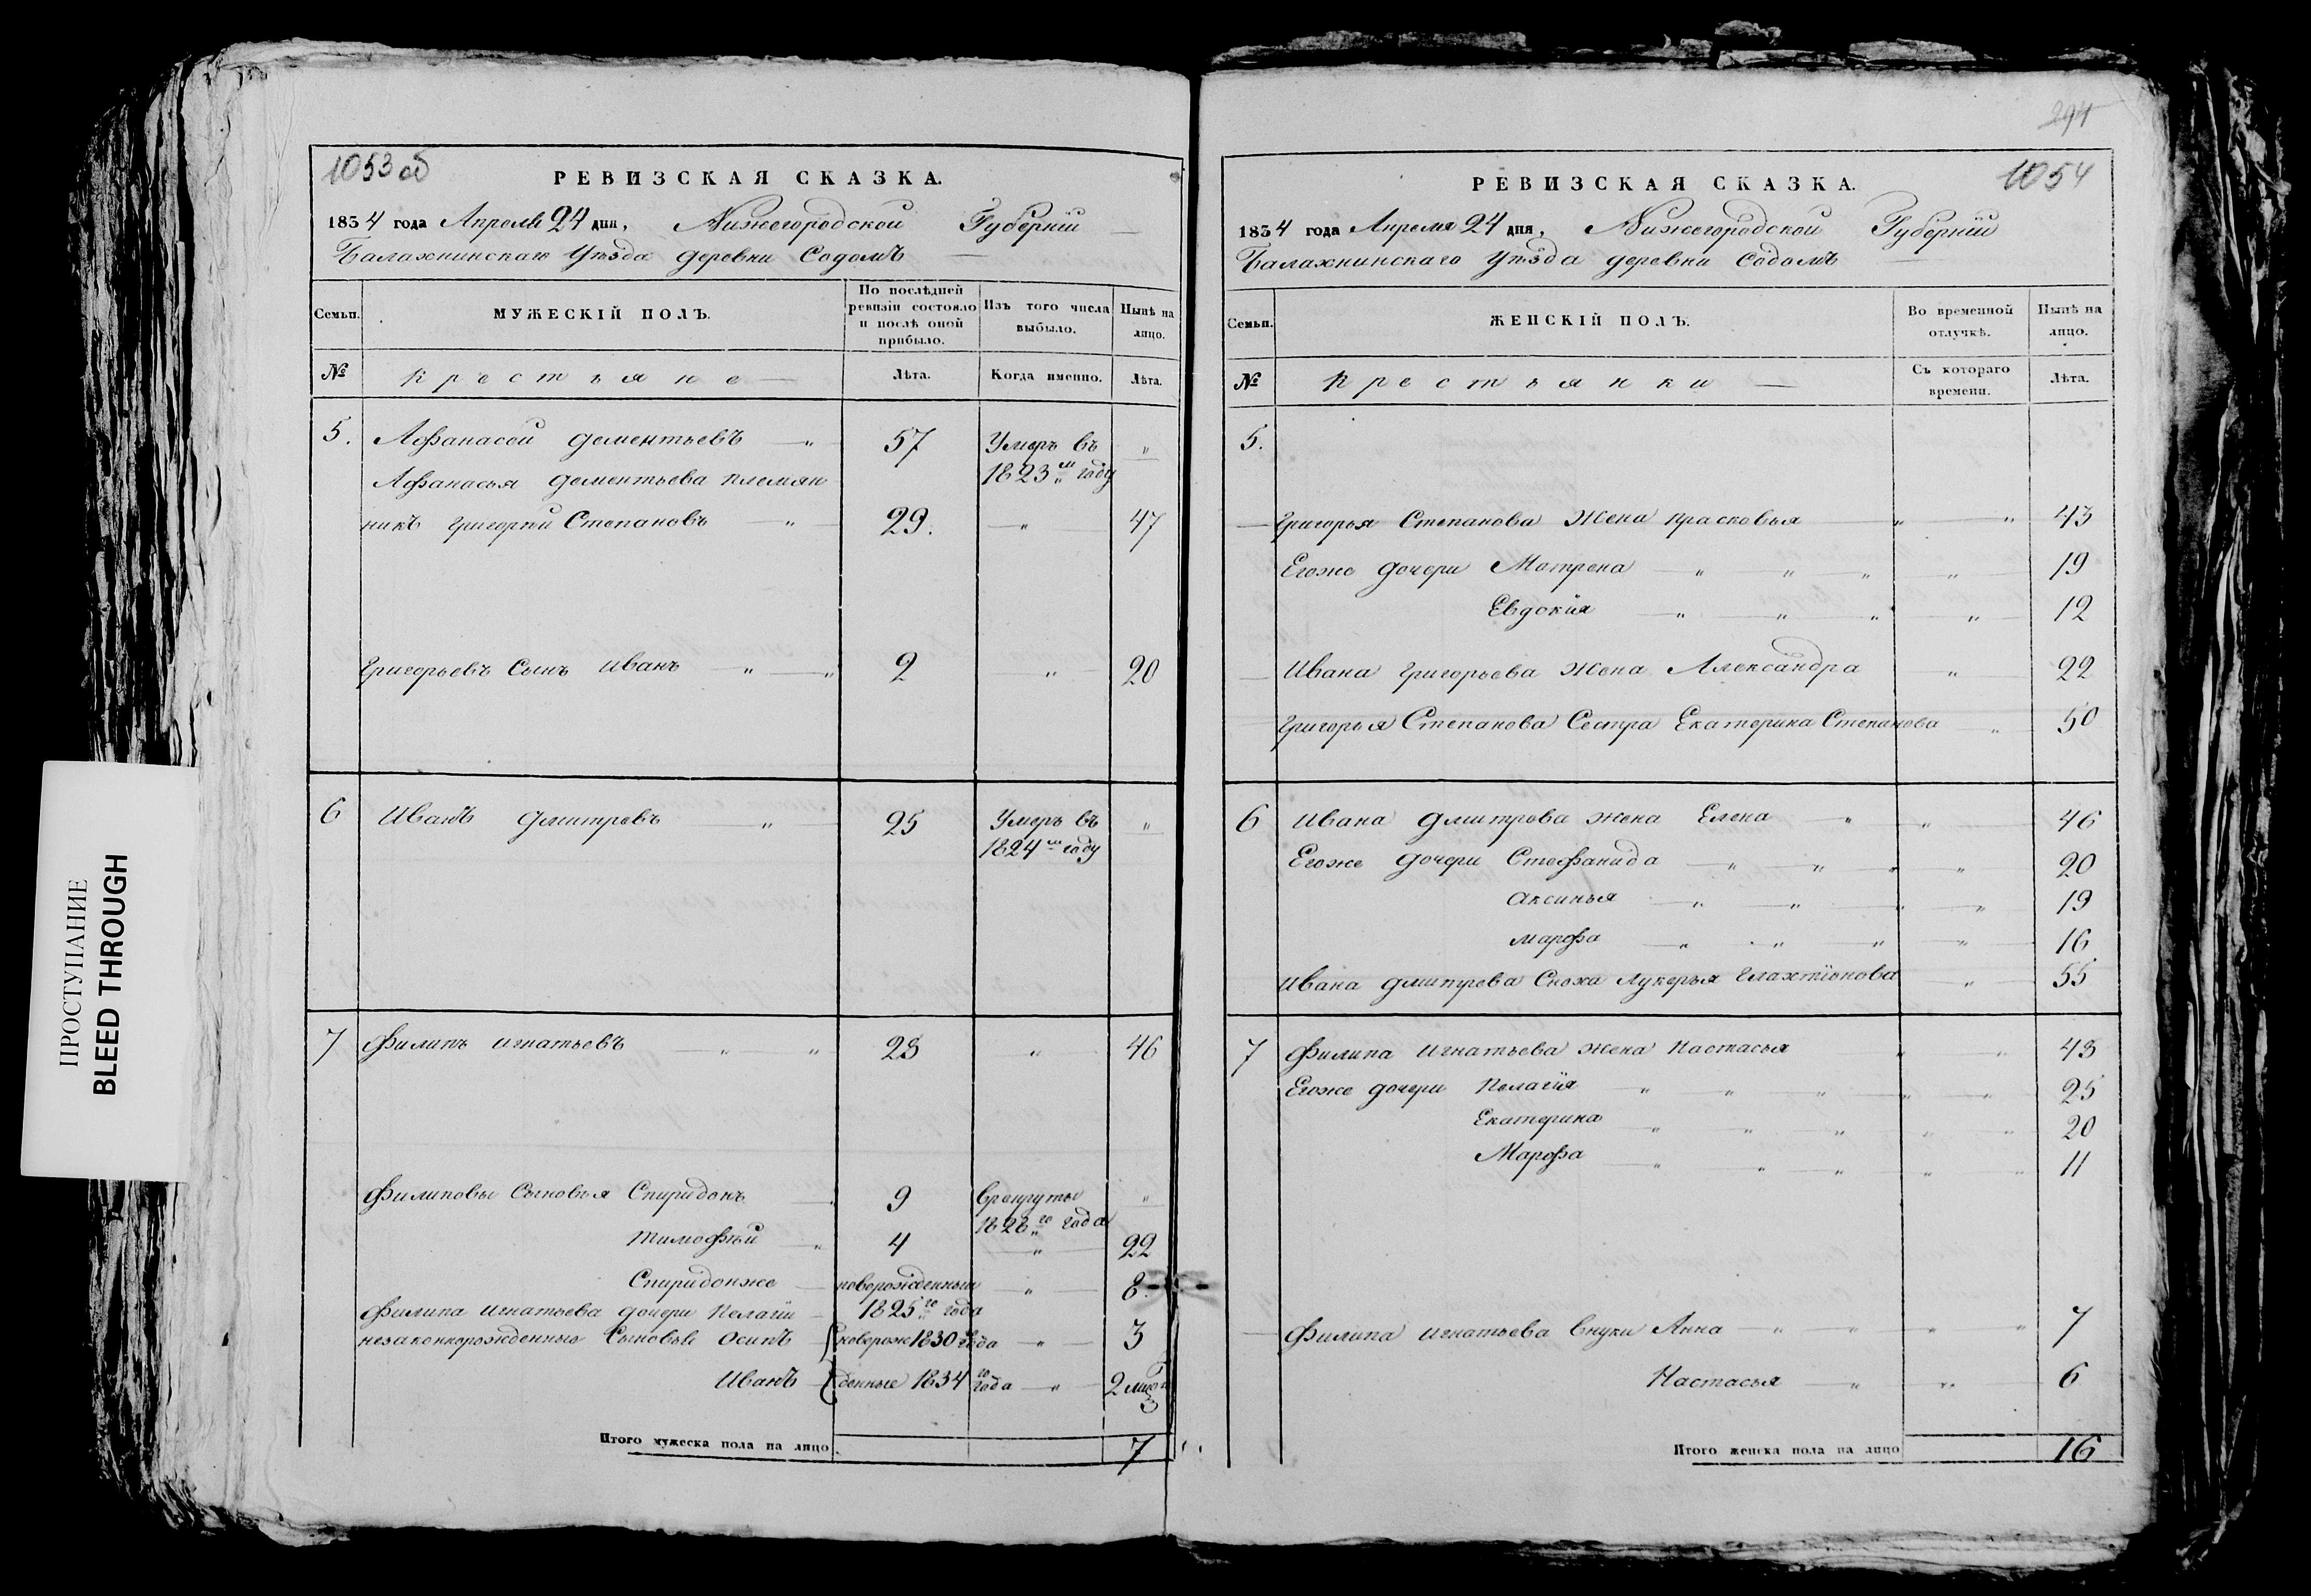 ПРОСТУПАНИЕ
BLEED THROUGH
1053 об
РЕВИЗСКАЯ СКАЗКА.
1834 года Апреля 24 дня, Нижегородской Губерніи
Балахнинскаго Уѣзда деревни Содомъ
Семьи.
МУЖЕСКІЙ ПОЛЪ.
По послѣдней ревизіи состояло и послѣ оной прибыло.
Изъ того числа выбыло.
Нынѣ на лицо.
№ Крестьяне Лѣта. Когда именно. Лѣта.
5. Афанасей Дементьевъ — " 57 Умеръ въ 1823м году "
Афанасья Дементьева племян
никъ Григорій Степановъ — " 29. — " 47
Григорьевъ Сынъ Иванъ — " — " 2 " 20
6 Иванъ Дмитревъ " 25 Умеръ въ 1824м году "
7 Филипъ Игнатьевъ " " 28 " 46
Филиповы Сыновья Спиридонъ 9 Врекруты 1828го года "
Тимофѣй " 4 " 22
Спиридонже новорожденный 1825го года " 8.
Филипа Игнатьева дочери Пелагіи
незаконнорожденные Сыновья Осипъ новорож 1830 года " 3
Иванъ денные 1834го года " 2 мисяц 3
Итого мужеска пола на лицо. 7
294
1054
РЕВИЗСКАЯ СКАЗКА.
1834 года Апреля 24 дня, Нижегородской Губерніи
Балахнинскаго Уѣзда деревни Содомъ
Семьи.
ЖЕНСКІЙ ПОЛЪ.
Во временной отлучкѣ.
Нынѣ на лицо.
№ Крестьянки — Съ котораго времени. Лѣта.
5.
Григорья Степанова Жена Прасковья " " 43
Егоже дочери Матрена — " " " " 19
Евдокія — " " " " 12
Ивана Григорьева Жена Александра " 22
Григорья Степанова Сестра Екатерина Степанова " 50
6 Ивана Дмитрева жена Елена " " 46
Егоже дочери Стефанида " " " " 20
Аксинья " " " " 19
Марфа " " " " 16
Ивана Дмитрева Сноха Лукерья Галахтіонова " 55
7 Филипа Игнатьева жена Настасья " " 43
Егоже дочери Пелагія " " " " " 25
Екатерина " " " " " 20
Марфа " " " " " 11
Филипа Игнатьева Внуки Анна " " " " 7
Настасья " " 6
Итого женска пола на лицо 16